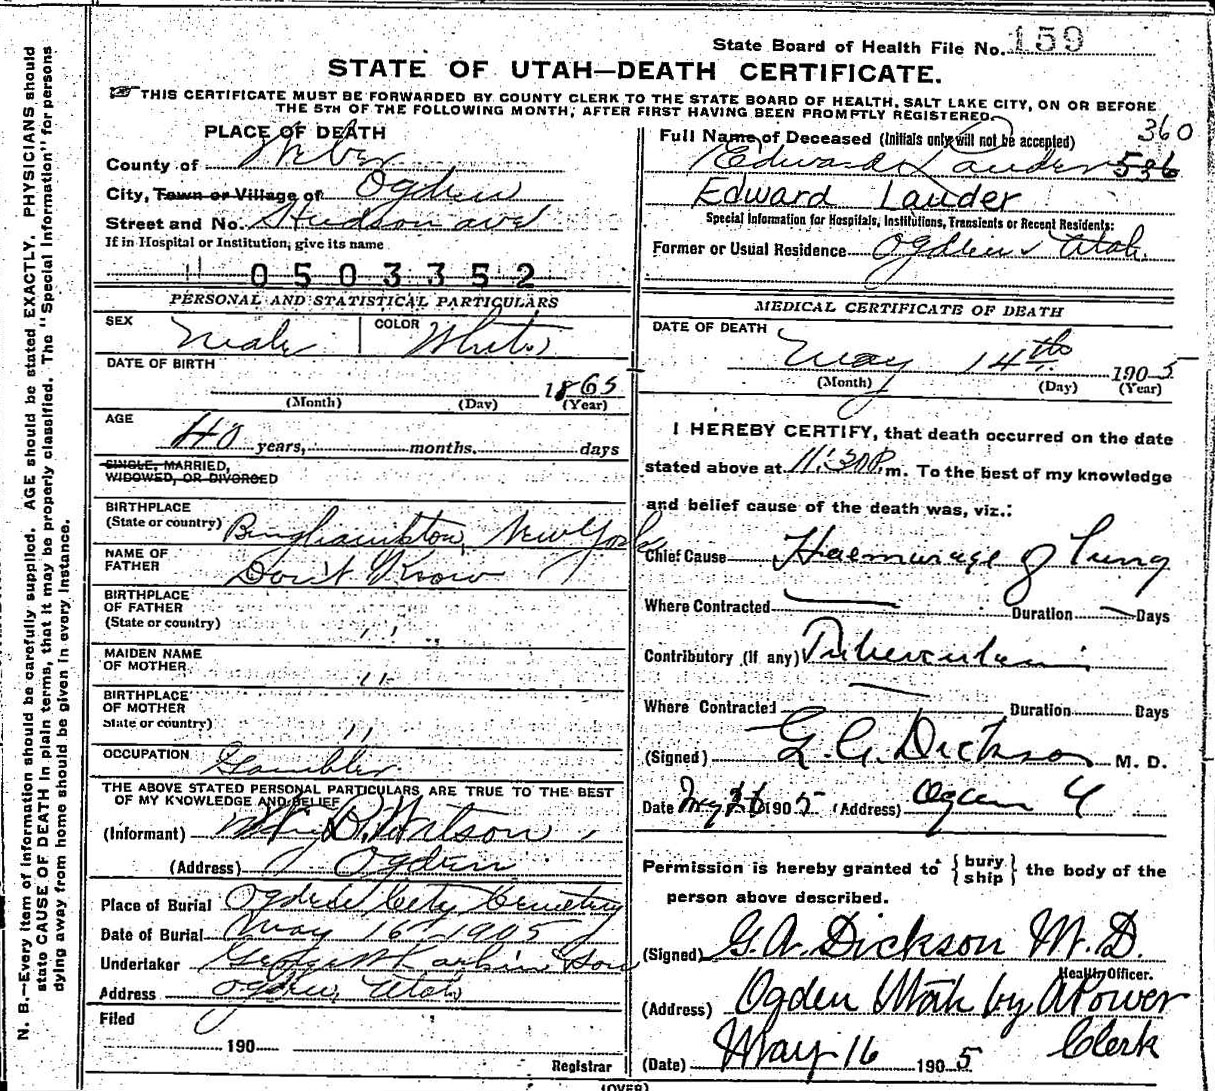 State Board of Health File No. 159
STATE OF UTAH—DEATH CERTIFICATE.
THIS CERTIFICATE MUST BE FORWARDED BY COUNTY CLERK TO THE STATE BOARD OF HEALTH, SALT LAKE CITY, ON OR BEFORE
THE 5TH OF THE FOLLOWING MONTH, AFTER FIRST HAVING BEEN PROMPTLY REGISTERED.
PLACE OF DEATH
County of Weber
City, Town or Village of Ogden
Street and No. Hudson ave
If in Hospital or Institution, give its name
0503352
PERSONAL AND STATISTICAL PARTICULARS
SEX Male COLOR White
DATE OF BIRTH
1865
(Month) (Day) (Year)
AGE
40 years, months. days
SINGLE, MARRIED,
WIDOWED, OR DIVORCED
BIRTHPLACE
(State or country) Binghamkton, New York
NAME OF
FATHER Don't Know
BIRTHPLACE
OF FATHER
(State or country) ,, ,,
MAIDEN NAME
OF MOTHER ,,
BIRTHPLACE
OF MOTHER
State or country) ,,
OCCUPATION Gambler
THE ABOVE STATED PERSONAL PARTICULARS ARE TRUE TO THE BEST
OF MY KNOWLEDGE AND BELIEF
(Informant) D. Watson
(Address) Ogden
Place of Burial Ogden City Cemetery
Date of Burial May 16 1905
Undertaker George W Larkin & Son
Address Ogden, Utah
Filed
190
Registrar
360
Full Name of Deceased (Initials only will not be accepted)
Edward Lauder 536
Edward Lauder
Special Information for Hospitals, Institutions, Transients or Recent Residents:
Former or Usual Residence Ogden Utah.
MEDICAL CERTIFICATE OF DEATH
DATE OF DEATH
May 14th 1905
(Month) (Day) (Year)
I HEREBY CERTIFY, that death occurred on the date
stated above at 11:30 P.m. To the best of my knowledge
and belief cause of the death was, viz.:
Chief Cause Haemorage of Lung
Where Contracted Duration Days
Contributory (if any) Tuberculosis
Where Contracted Duration Days
(Signed) G. A. Dickson M. D.
Date May 16 1905 (Address) Ogden U
Permission is hereby granted to { bury ship } the body of the
person above described.
(Signed) G. A. Dickson M. D.
Health Officer.
(Address) Ogden Utah by A Power
Clerk
(Date) May 16 1905
(OVER)
N. B.—Every item of information should be carefully supplied. AGE should be stated EXACTLY. PHYSICIANS should
state CAUSE OF DEATH in plain terms, that it may be properly classified. The "Special Information" for persons
dying away from home should be given in every instance.